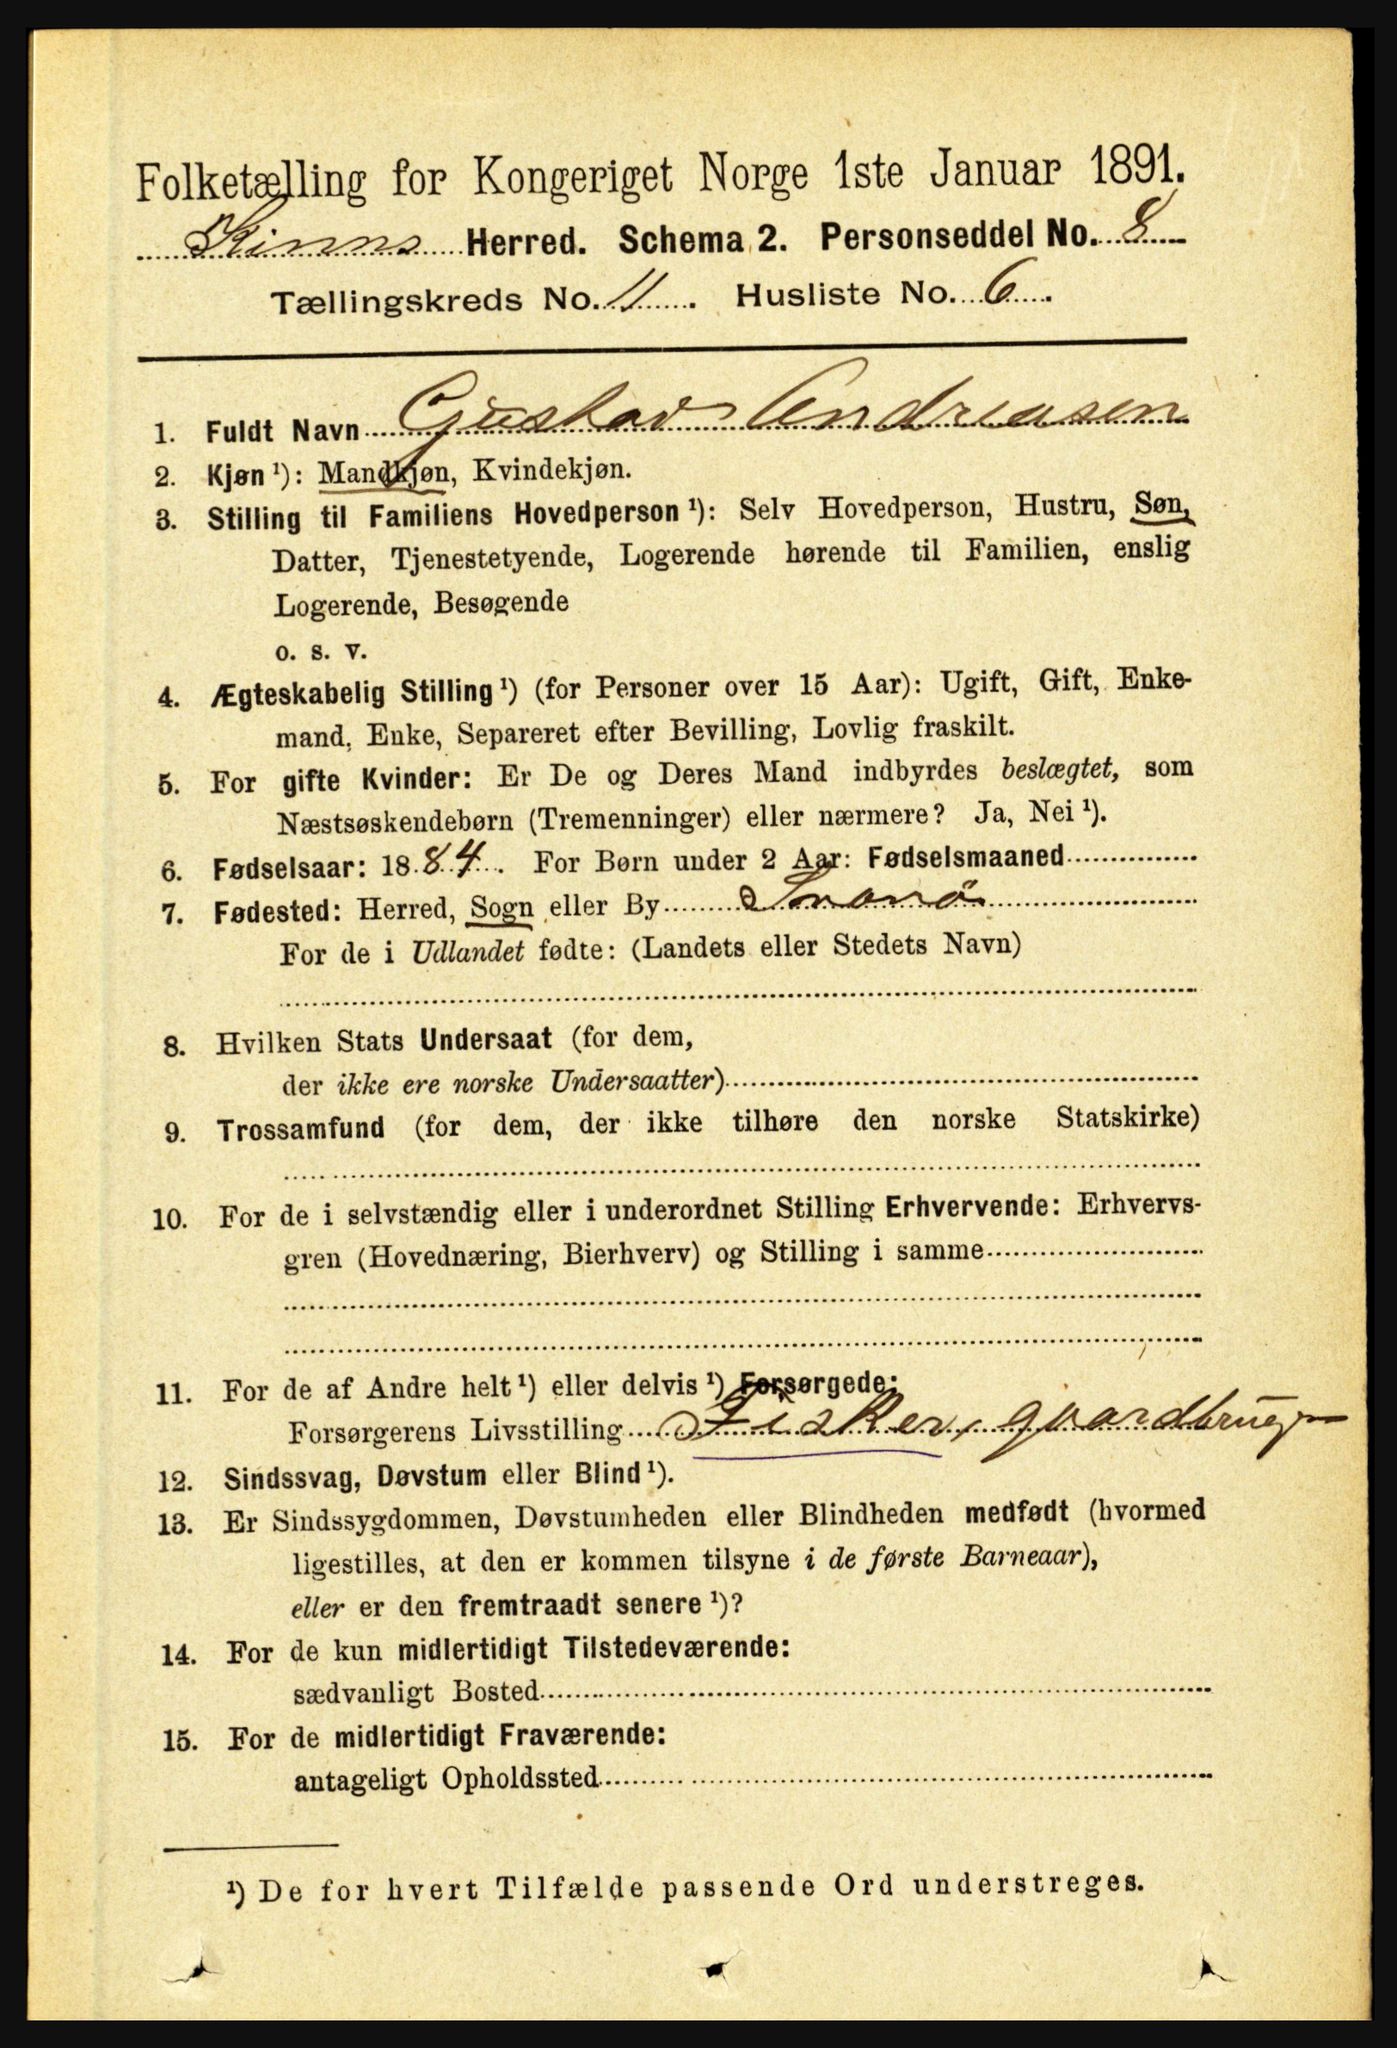 Folketælling for Kongeriget Norge 1ste Januar 1891.
Kinns Herred. Schema 2. Personseddel No. 8
Tællingskreds No. 11. Husliste No. 6.
1. Fuldt Navn Gustav Andreasen
2. Kjøn ¹): Mandkjøn, Kvindekjøn.
3. Stilling til Familiens Hovedperson ¹): Selv Hovedperson, Hustru, Søn,
Datter, Tjenestetyende, Logerende hørende til Familien, enslig
Logerende, Besøgende
o. s. v.
4. Ægteskabelig Stilling ¹) (for Personer over 15 Aar): Ugift, Gift, Enke-
mand, Enke, Separeret efter Bevilling, Lovlig fraskilt.
5. For gifte Kvinder: Er De og Deres Mand indbyrdes beslægtet, som
Næstsøskendebørn (Tremenninger) eller nærmere? Ja, Nei ¹).
6. Fødselsaar: 1884. For Børn under 2 Aar: Fødselsmaaned
7. Fødested: Herred, Sogn eller By Svanø
For de i Udlandet fødte: (Landets eller Stedets Navn)
8. Hvilken Stats Undersaat (for dem,
der ikke ere norske Undersaatter)
9. Trossamfund (for dem, der ikke tilhøre den norske Statskirke)
10. For de i selvstændig eller i underordnet Stilling Erhvervende: Erhvervs-
gren (Hovednæring, Bierhverv) og Stilling i samme
11. For de af Andre helt ¹) eller delvis ¹) Forsørgede:
Forsørgerens Livsstilling Fisker, gaardbruger
12. Sindssvag, Døvstum eller Blind ¹).
13. Er Sindssygdommen, Døvstumheden eller Blindheden medfødt (hvormed
ligestilles, at den er kommen tilsyne i de første Barneaar),
eller er den fremtraadt senere ¹)?
14. For de kun midlertidigt Tilstedeværende:
sædvanligt Bosted
15. For de midlertidigt Fraværende:
antageligt Opholdssted
¹) De for hvert Tilfælde passende Ord understreges.